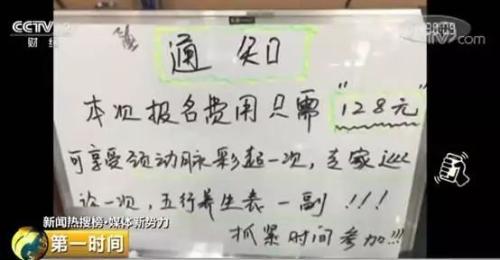 CCTV 2
财经
CCTV.com
通知
本次报名费用只需"128元"
可享受颈动脉彩超一次,专家巡
诊一次,五行养生表一副!!!
抓紧时间参加!!!
新闻热搜榜·媒体新势力
第一时间